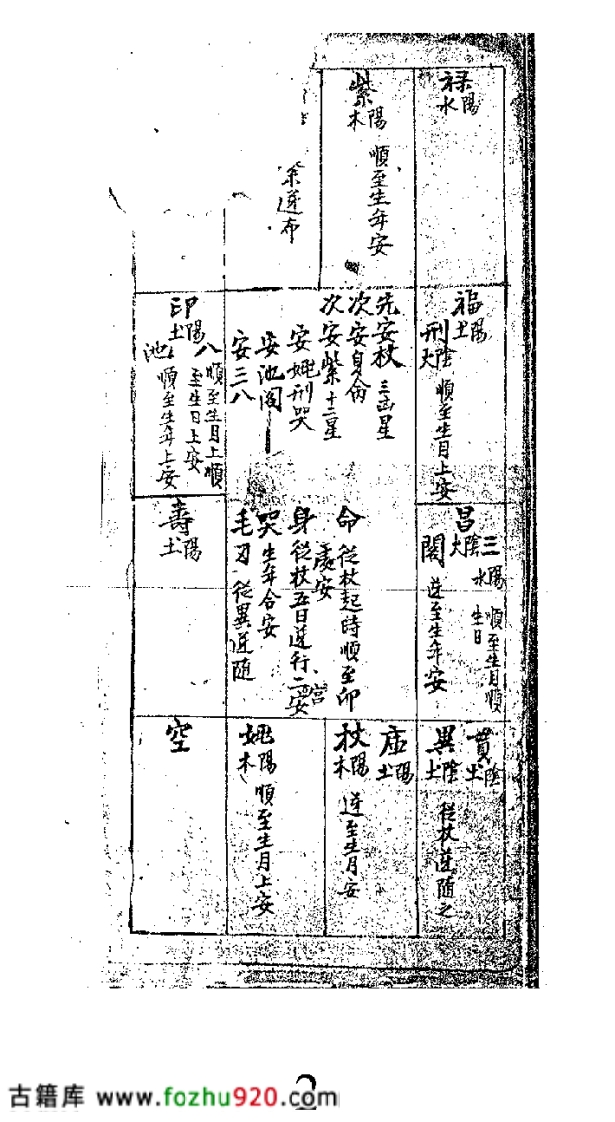 禄
陽
水
紫
陽
木
順至生年安
𠆢逆布
福
陽
土
刑
陰
火
順至生月上安
先安杖三凶星
次安身命
次安紫十二星
安姚刑哭
安池閣
安三八
印
陽
土
八
順至生月上順
至生日上安
池
順至生年上安
昌
陰
三
陽
水
順至生月順
生日
閣
逆至生年安
命 從杖起時順至卯
處安
身 從杖五日逆行二宮安
哭 生年合安
毛刃 從異逆随
壽
陽
土
貫
陰
土
異
陰
土
從杖逆随之
庫
陽
土
杖
陽
木
逆至生月安
姚
陽
木
順至生月上安
空
2
古籍库 www.fozhu920.com